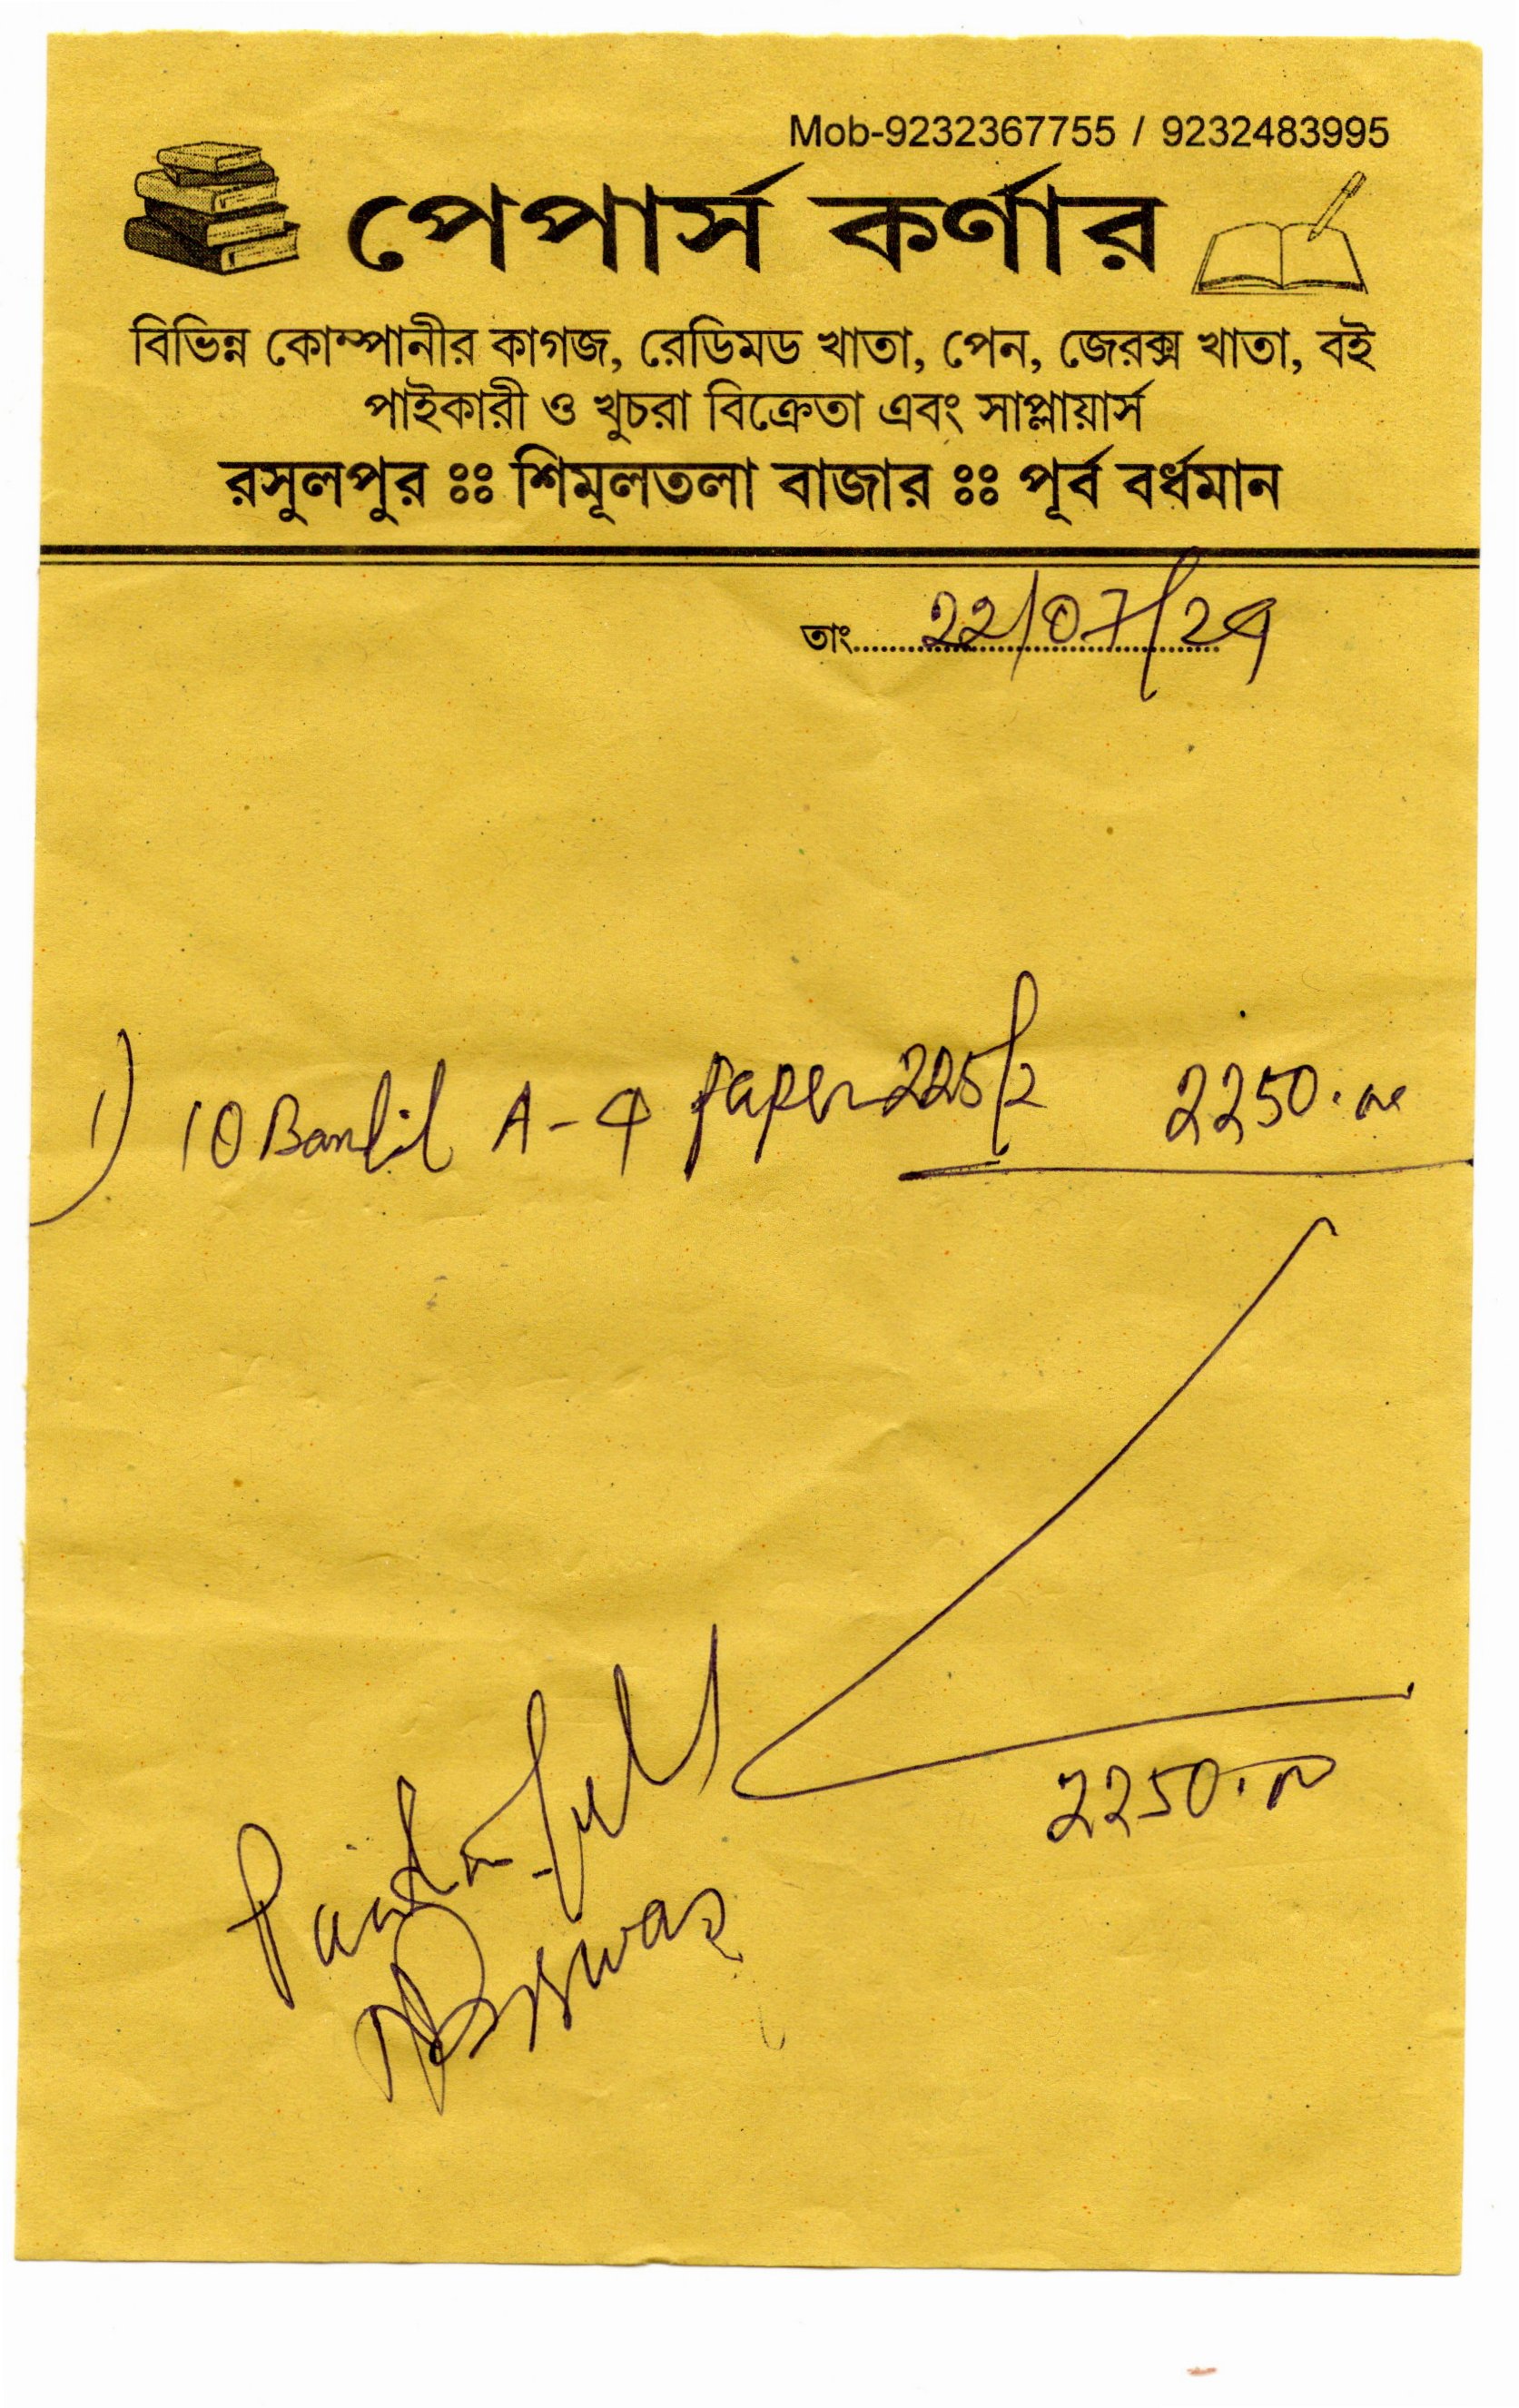 Mob-9232367755 / 9232483995
পেপার্স কর্ণার
বিভিন্ন কোম্পানীর কাগজ, রেডিমড খাতা, পেন, জেরক্স খাতা, বই
পাইকারী ও খুচরা বিক্রেতা এবং সাপ্লায়ার্স
রসুলপুর ঃঃ শিমূলতলা বাজার ঃঃ পূর্ব বর্ধমান
তাং 22/07/24
1) 10 Bandil A-4 paper 225/- 2250.00
2250.00
Biswas